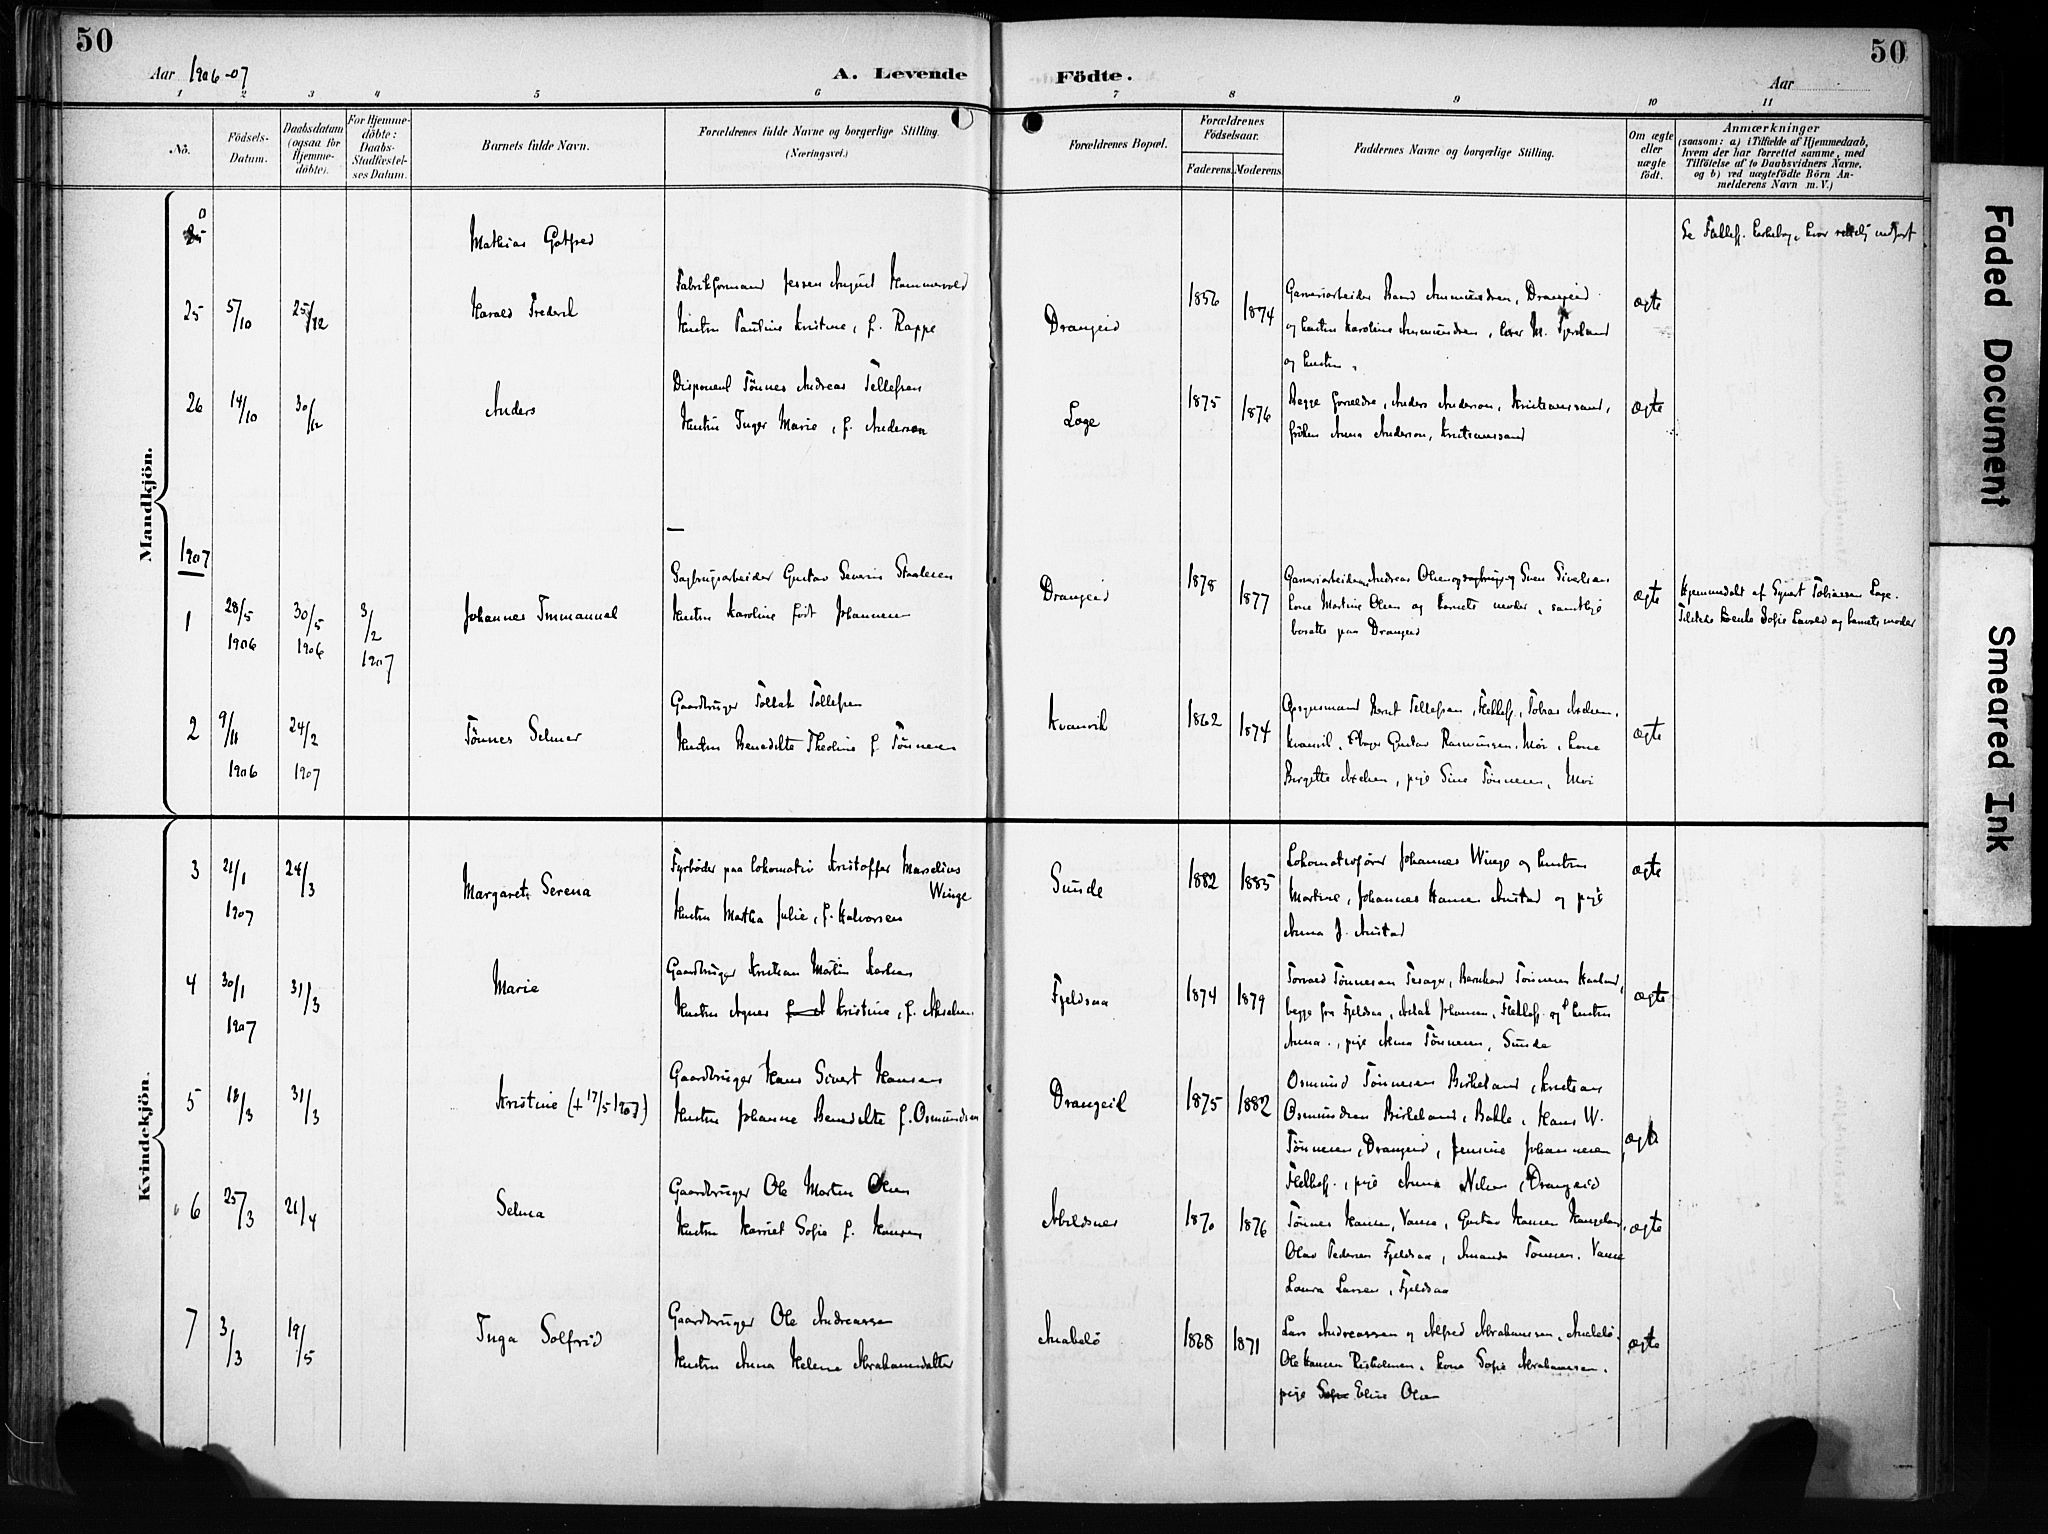 50
50
Aar 1906-07
A. Levende
Födte.
Aar
1 2 3 4 5 6 7 8 9 10 11
No.
Födsels-
Datum.
Daabsdatum
(ogsaa för
Hjemme-
döbte).
For Hjemme-
döbte:
Daabs-
Stadfæstel-
ses Datum.
Barnets fulde Navn.
Forældrenes fulde Navne og borgerlige Stilling.
(Næringsvei.)
Forældrenes Bopæl.
Forældrenes
Födselsaar.
Faderens. Moderens.
Faddernes Navne og borgerlige Stilling.
Om ægte
eller
uægte
födt.
Anmærkninger
(saasom: a) i Tilfælde af Hjemmedaab,
hvem der har forrettet samme, med
Tilföielse af to Daabsvidners Navne,
og b) ved uægtefödte Börn An-
melderens Navn m. V.)
Mandkjön.
Mathias Gotfred
25
5/10
25/12
Harald Frederik
August Hammervold
Hustru Pauline Kristine, f. Rappe
Drangeid
1856
1874
Amundsen, Drangeid
og hustru Karoline Amundsen, M.
og hustru
ægte
26
14/10
30/12
Anders
Disponent Tönnes Andreas Tellefsen
Hustru Inger Marie, f. Anderson
Loge
1875
1876
Begge forældre, Anders Anderson, Kristianssand,
fröken Anna Anderson, Kristianssand
ægte
1907
1
28/5
1906
30/5
1906
3/2
1907
Johannes Immanuel
Sagbrugsarbeider Gustav Severin Staalesen
Hustru Karoline född Johannesen
Drangeid
1878
1877
Andreas Olsen og Sven Sivertsen
Kone Martine Olsen og barnets moder, samtlige
bosatte paa Drangeid
ægte
Hjemmedöbt af Tobiassen Loge.
Sofie og barnets moder
2
9/11
1906
24/2
1907
Tönnes Selmer
Gaardbruger Tollak Tollefsen
Hustru Benedikte Theoline f. Tönnesen
Kvanvik
1862
1874
Tellefsen, Flekkef., Tobias
Kvanvik, Gustav Rasmussen, Moi, kone
Birgitte pige Sine Tönnesen, Moi
ægte
Kvindekjön.
3
21/1
1907
24/3
Margarete Serena
Fyrböder paa lokomotiv Kristoffer Marselius
Winge
Hustru Martha Julie, f. Halvorsen
Sunde
1882
1885
Lokomotivförer Johannes Winge og hustru
Martine, Johannes Hansen Austad og pige
Anna J. Austad
ægte
4
30/1
1907
31/3
Marie
Gaardbruger Kristian Martin
Hustru Agnes Kristine, f.
Fjeldsaa
1874
1879
Torvald Tönnesen Bernhard Tönnesen
begge fra Fjeldsaa, Flekkef. og hustru
Anna, pige Alma Tönnesen, Sunde
ægte
5
18/3
31/3
Kristine (+ 17/5 1907)
Gaardbruger Hans Sivert Hansen
Hustru Johanne Benedikte f. Osmundsen
Drangeid
1875
1882
Osmund Tönnesen Birkeland, Kristian
Osmundsen Birkeland, Bakke, Hans W.
Tönnesen, Drangeid, Jensine Johannesen
Flekkef., pige Anna Nilsen, Drangeid
ægte
6
25/3
21/4
Selma
Gaardbruger Ole Martin Olsen
Hustru Harriet Sofie f. Hansen
Abildsnes
1870
1876
Tönnes Hansen, Gustav Hansen
Olav Pedersen Fjeldsaa, Amanda Tönnesen.
Laura Larsen, Fjeldsaa
ægte
7
3/3
19/5
Inga Solfrid
Gaardbruger Ole Andreassen
Hustru Anna Helene Abrahamsdatter
Anabelö
1868
1871
Lars Andreassen og Alfred Abrahamsen, Anabelö.
Ole Hansen kone Sofie Abrahamsen,
pige Elise Olsen
ægte
Faded Document
Smeared Ink